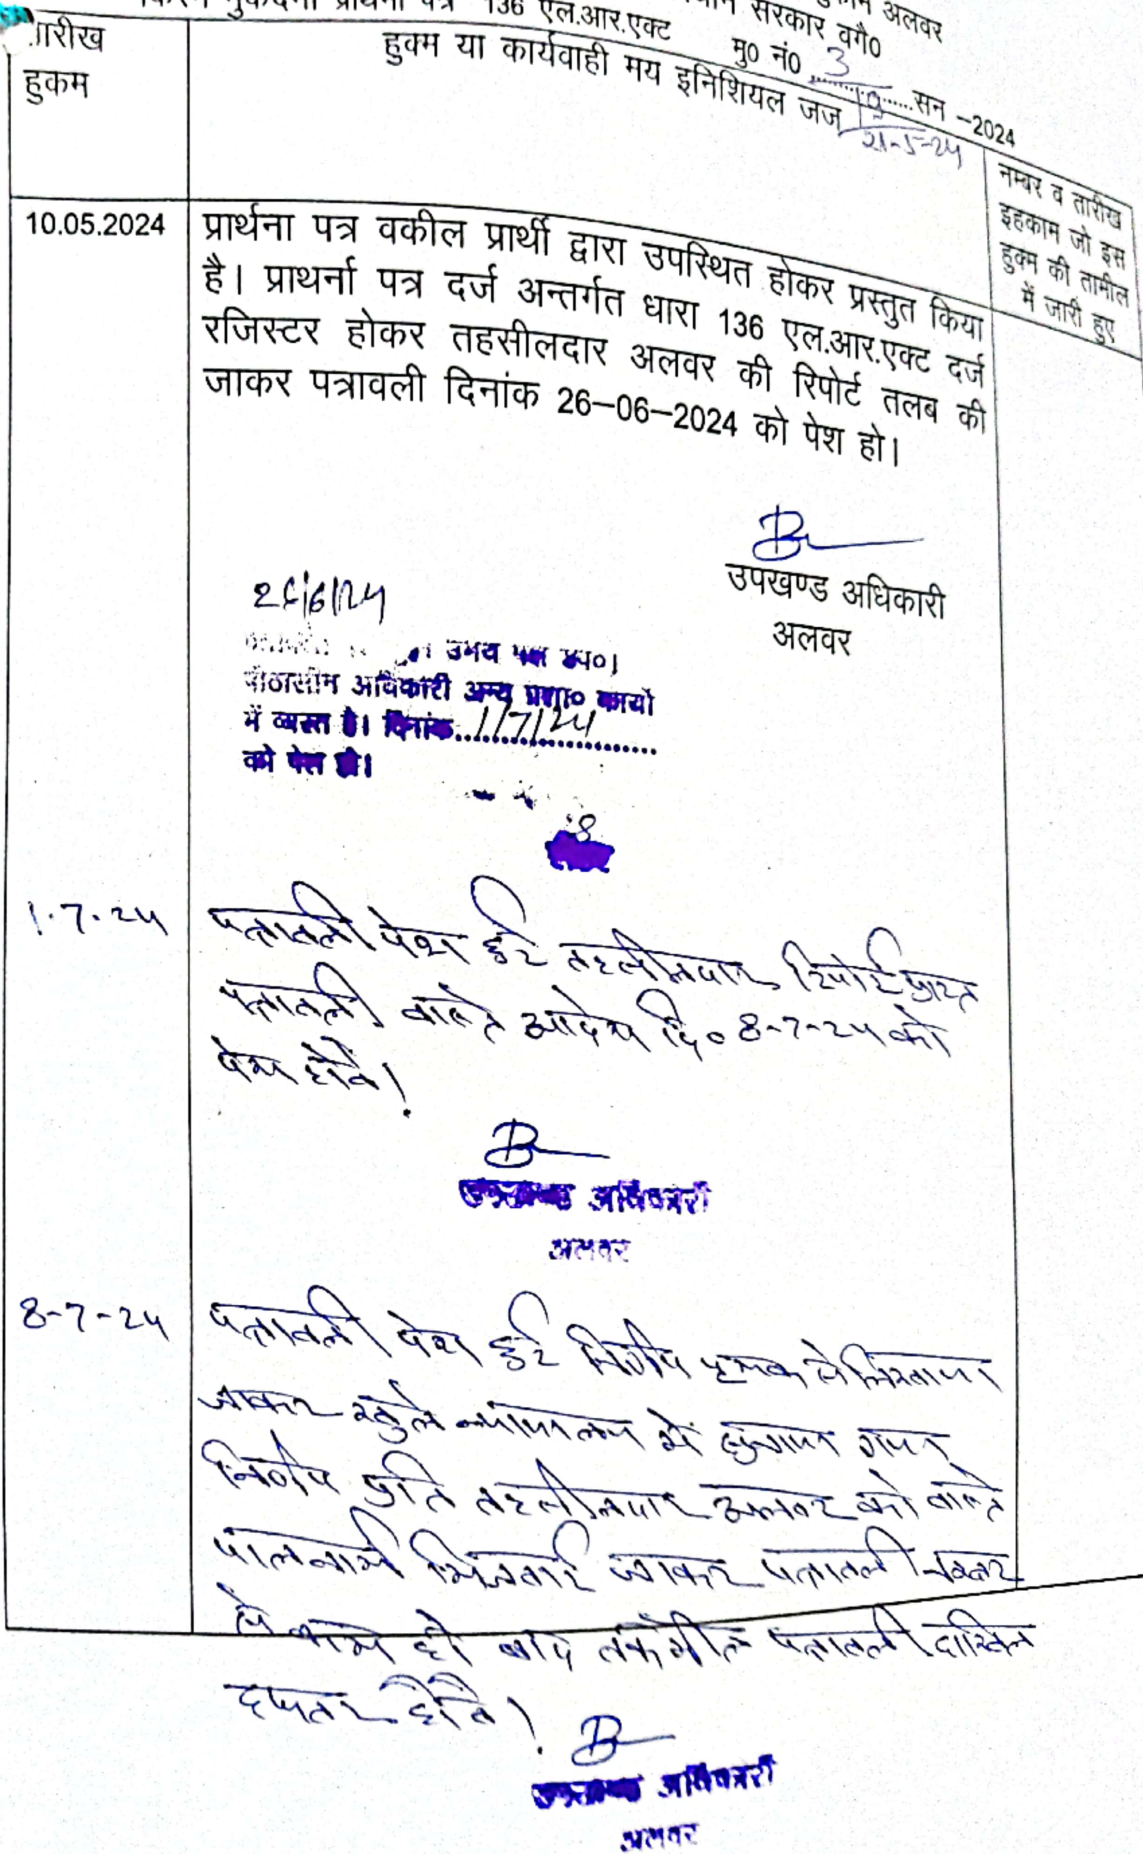 प्रार्थना पत्र 136 एल.आर.एक्ट सरकार वगै० अलवर
मु० नं० 3 सन -2024
21-5-24
तारीख
हुकम
हुक्म या कार्यवाही मय इनिशियल जज
नम्बर व तारीख
इहकाम जो इस
हुक्म की तामील
में जारी हुए
10.05.2024
प्रार्थना पत्र वकील प्रार्थी द्वारा उपस्थित होकर प्रस्तुत किया
है। प्राथर्ना पत्र दर्ज अन्तर्गत धारा 136 एल.आर.एक्ट दर्ज
रजिस्टर होकर तहसीलदार अलवर की रिपोर्ट तलब की
जाकर पत्रावली दिनांक 26-06-2024 को पेश हो।
उपखण्ड अधिकारी
अलवर
26/6/24
उभय पक्ष उप०।
पीठासीन अधिकारी अन्य प्रशा० कार्यो
में व्यस्त है। दिनांक 1/7/24
को पेश हो।
1.7.24
पत्रावली पेश हुई तहसीलदार रिपोर्ट प्राप्त
पत्रावली वास्ते आदेश दि० 8-7-24 को
पेश होवे।
उपखण्ड अधिकारी
अलवर
8-7-24
पत्रावली पेश हुई निर्णय पृथक से लिखाया
जाकर खुले न्यायालय में सुनाया गया
निर्णय प्रति तहसीलदार अलवर को वास्ते
पालनार्थ भिजवाई जाकर पत्रावली नम्बर
से कम हो बाद तकमील पत्रावली दाखिल
दफ्तर होवे।
उपखण्ड अधिकारी
अलवर